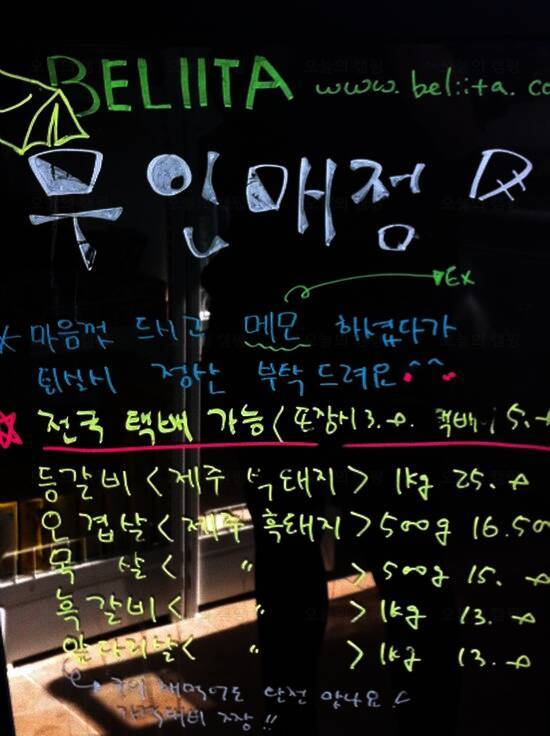 BELIITA www.beliita.co
무인매점
Ex
마음껏 드시고 메모 하셨다가
퇴실시 정산 부탁 드려요 ^^
전국 택배 가능 < 포장시 3.-0. 택배 5.-
등갈비 < 제주 흑돼지 > 1kg 25.-0
오겹살 < 제주 흑돼지 > 500g 16.50
목살 < " > 500g 15.-0
흑갈비 < " > 1kg 13.-0
앞다리살 < " > 1kg 13.-0
구워 먹어도 안전
가격대비 짱!!